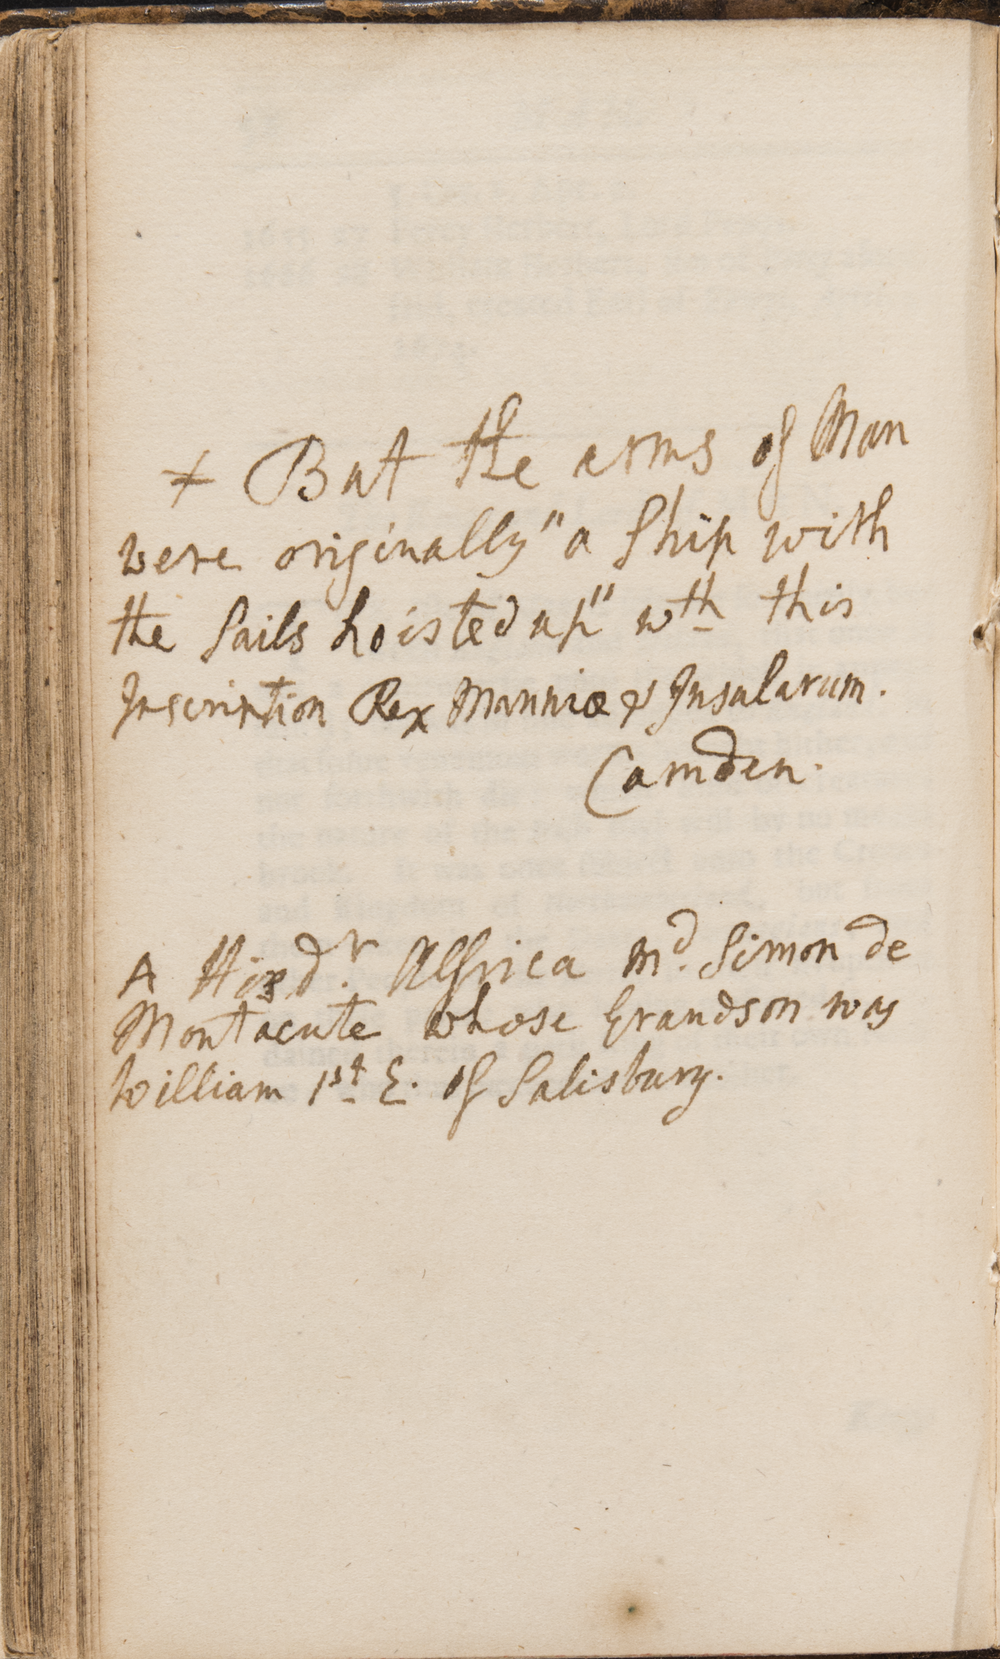 + But the arms of Man
were originally "a Ship with
the Sails hoisted up" wth this
Inscription Rex Manniæ & Insularum.
Camden.
A His dr. Alfrica md. Simon de
Montacute whose Grandson was
William 1st E. of Salisbury.